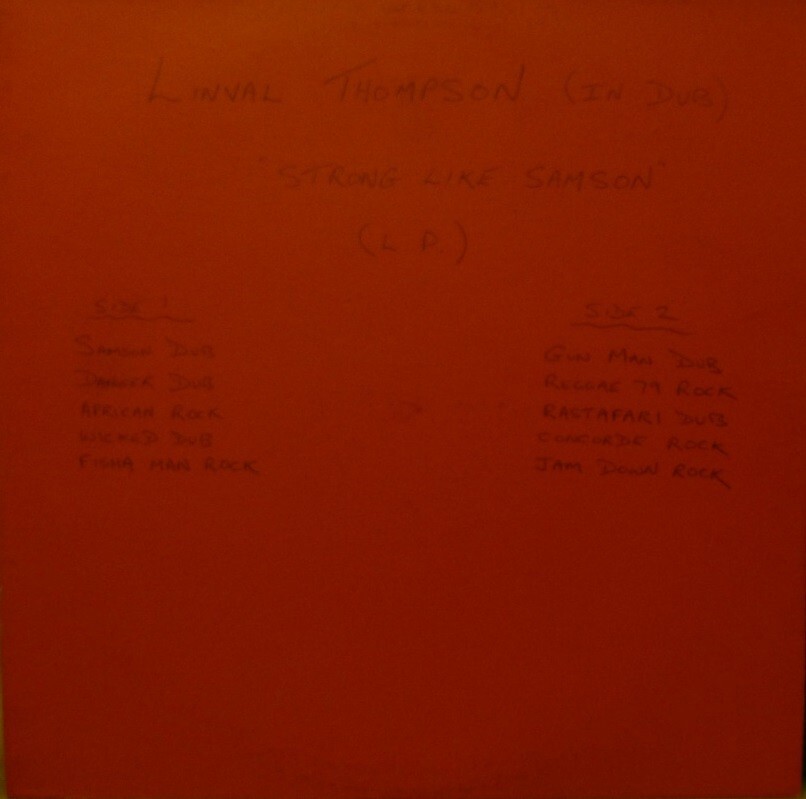 LINVAL THOMPSON (IN DUB)
"STRONG LIKE SAMSON"
(L P.)
SIDE 1
SAMSON DUB
DANGER DUB
AFRICAN ROCK
WICKED DUB
FISHA MAN ROCK
SIDE 2
GUN MAN DUB
REGGAE 79 ROCK
RASTAFARI DUB
CONCORDE ROCK
JAM DOWN ROCK